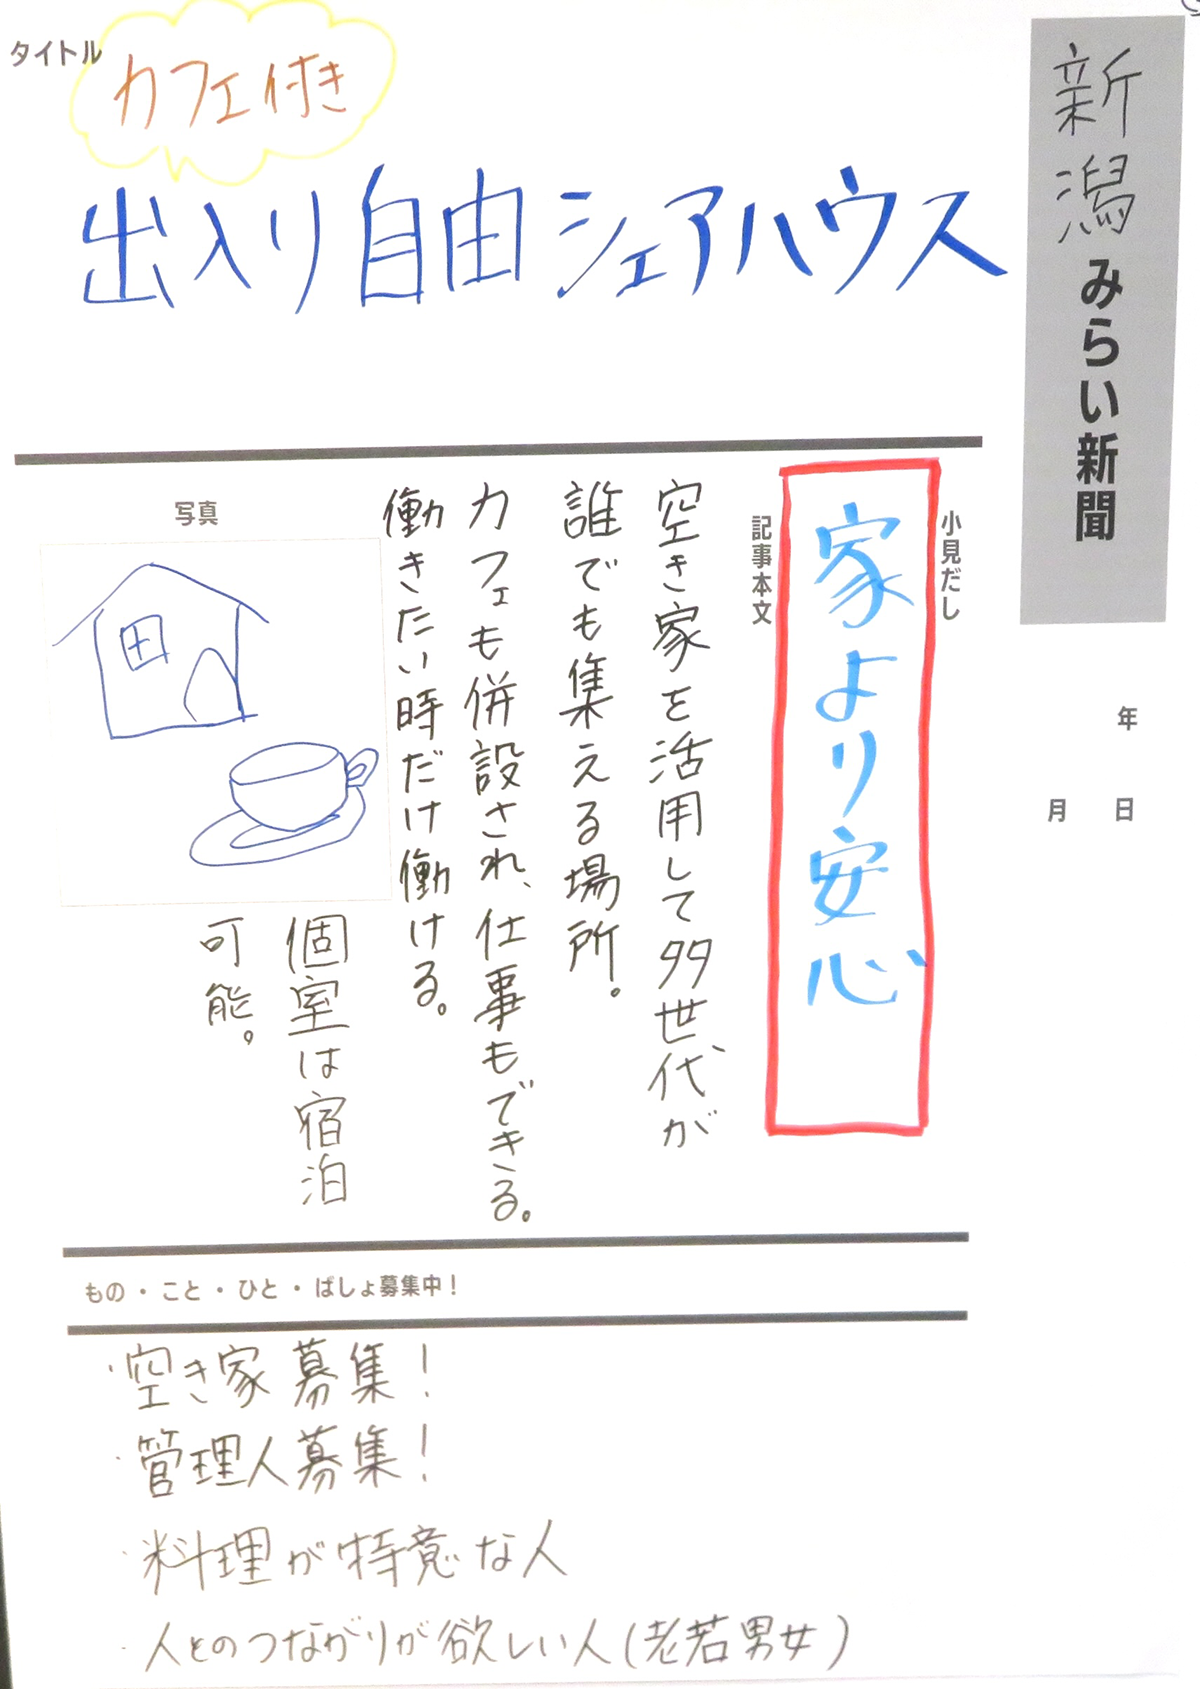 新潟みらい新聞
年
月 日
タイトル
カフェ付き
出入り自由シェアハウス
小見だし
家より安心
記事本文
空き家を活用して多世代が
誰でも集える場所。
カフェも併設され、仕事もできる。
働きたい時だけ働ける。
個室は宿泊
可能。
写真
もの・こと・ひと・ばしょ募集中！
・空き家募集！
・管理人募集！
・料理が特意な人
・人とのつながりが欲しい人(老若男女)